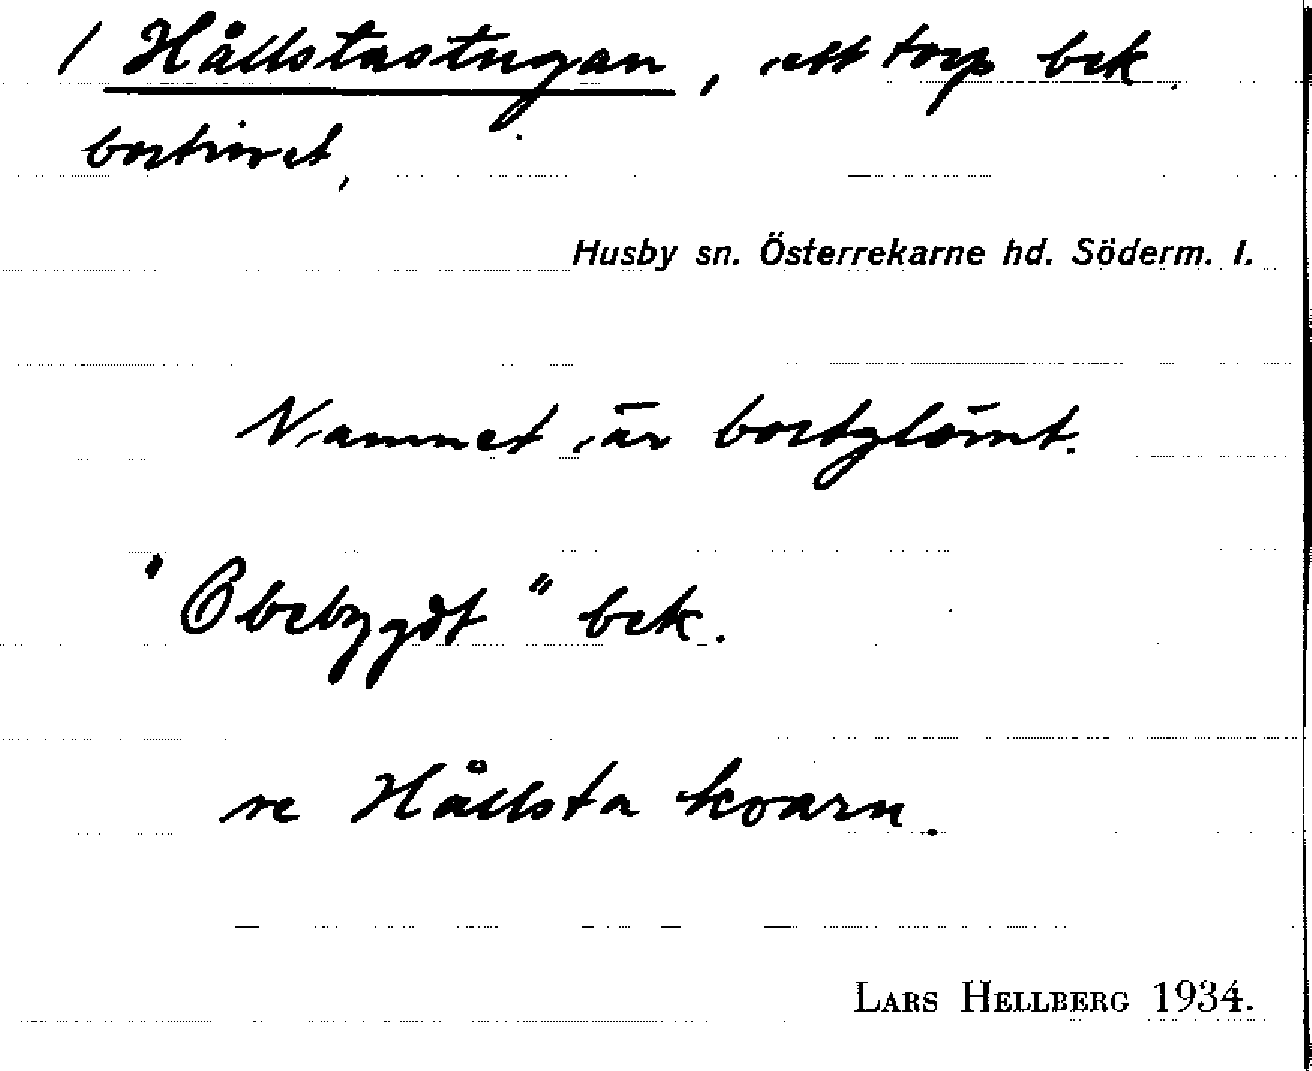 / Hållstastugan, ett torp bek.
bortrivet,
Husby sn. Österrekarne hd. Söderm. l.
Namnet är bortglömt.
"Obebygdt" bek.
se Hållsta kvarn.
LARS HELLBERG 1934.